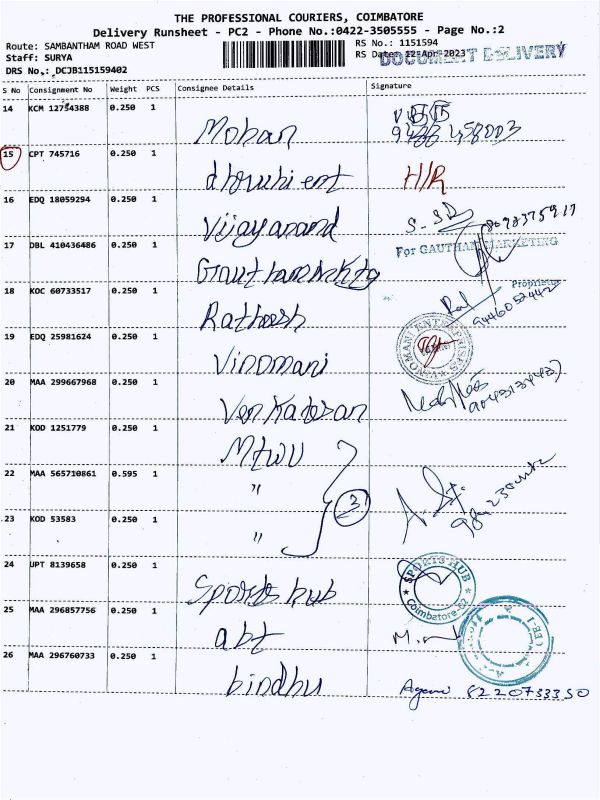 THE PROFESSIONAL COURIERS, COIMBATORE
Delivery Runsheet - PC2 - Phone No.:0422-3505555 - Page No.:2
Route: SAMBANTHAM ROAD WEST
RS No.: 1151594
Staff: SURYA
RS Date: 12-Apr-2023
DOCUMENT DELIVERY
DRS No.: DCJB115159402
S No Consignment No Weight PCS Consignee Details Signature
14 KCM 12754388 0.250 1
Mohan
15 CPT 745716 0.250 1
H/R
16 EDQ 18059294 0.250 1
Vijayanand
17 DBL 410436486 0.250 1
For GAUTHAM MARKETING
Gautham mktg
Proprietor
18 KOC 60733517 0.250 1
Ratheesh
9446052442
19 EDQ 25981624 0.250 1
VINOMANI ENTERPRISES
Vinomani
20 MAA 299667968 0.250 1
Venkatesan
21 KOD 1251779 0.250 1
Mtwu
22 MAA 565710861 0.595 1
"
3
23 KOD 53583 0.250 1
"
24 UPT 8139658 0.250 1
SPORTS HUB
Coimbatore
Sports hub
25 MAA 296857756 0.250 1
abt
26 MAA 296760733 0.250 1
bindhu
8220733350